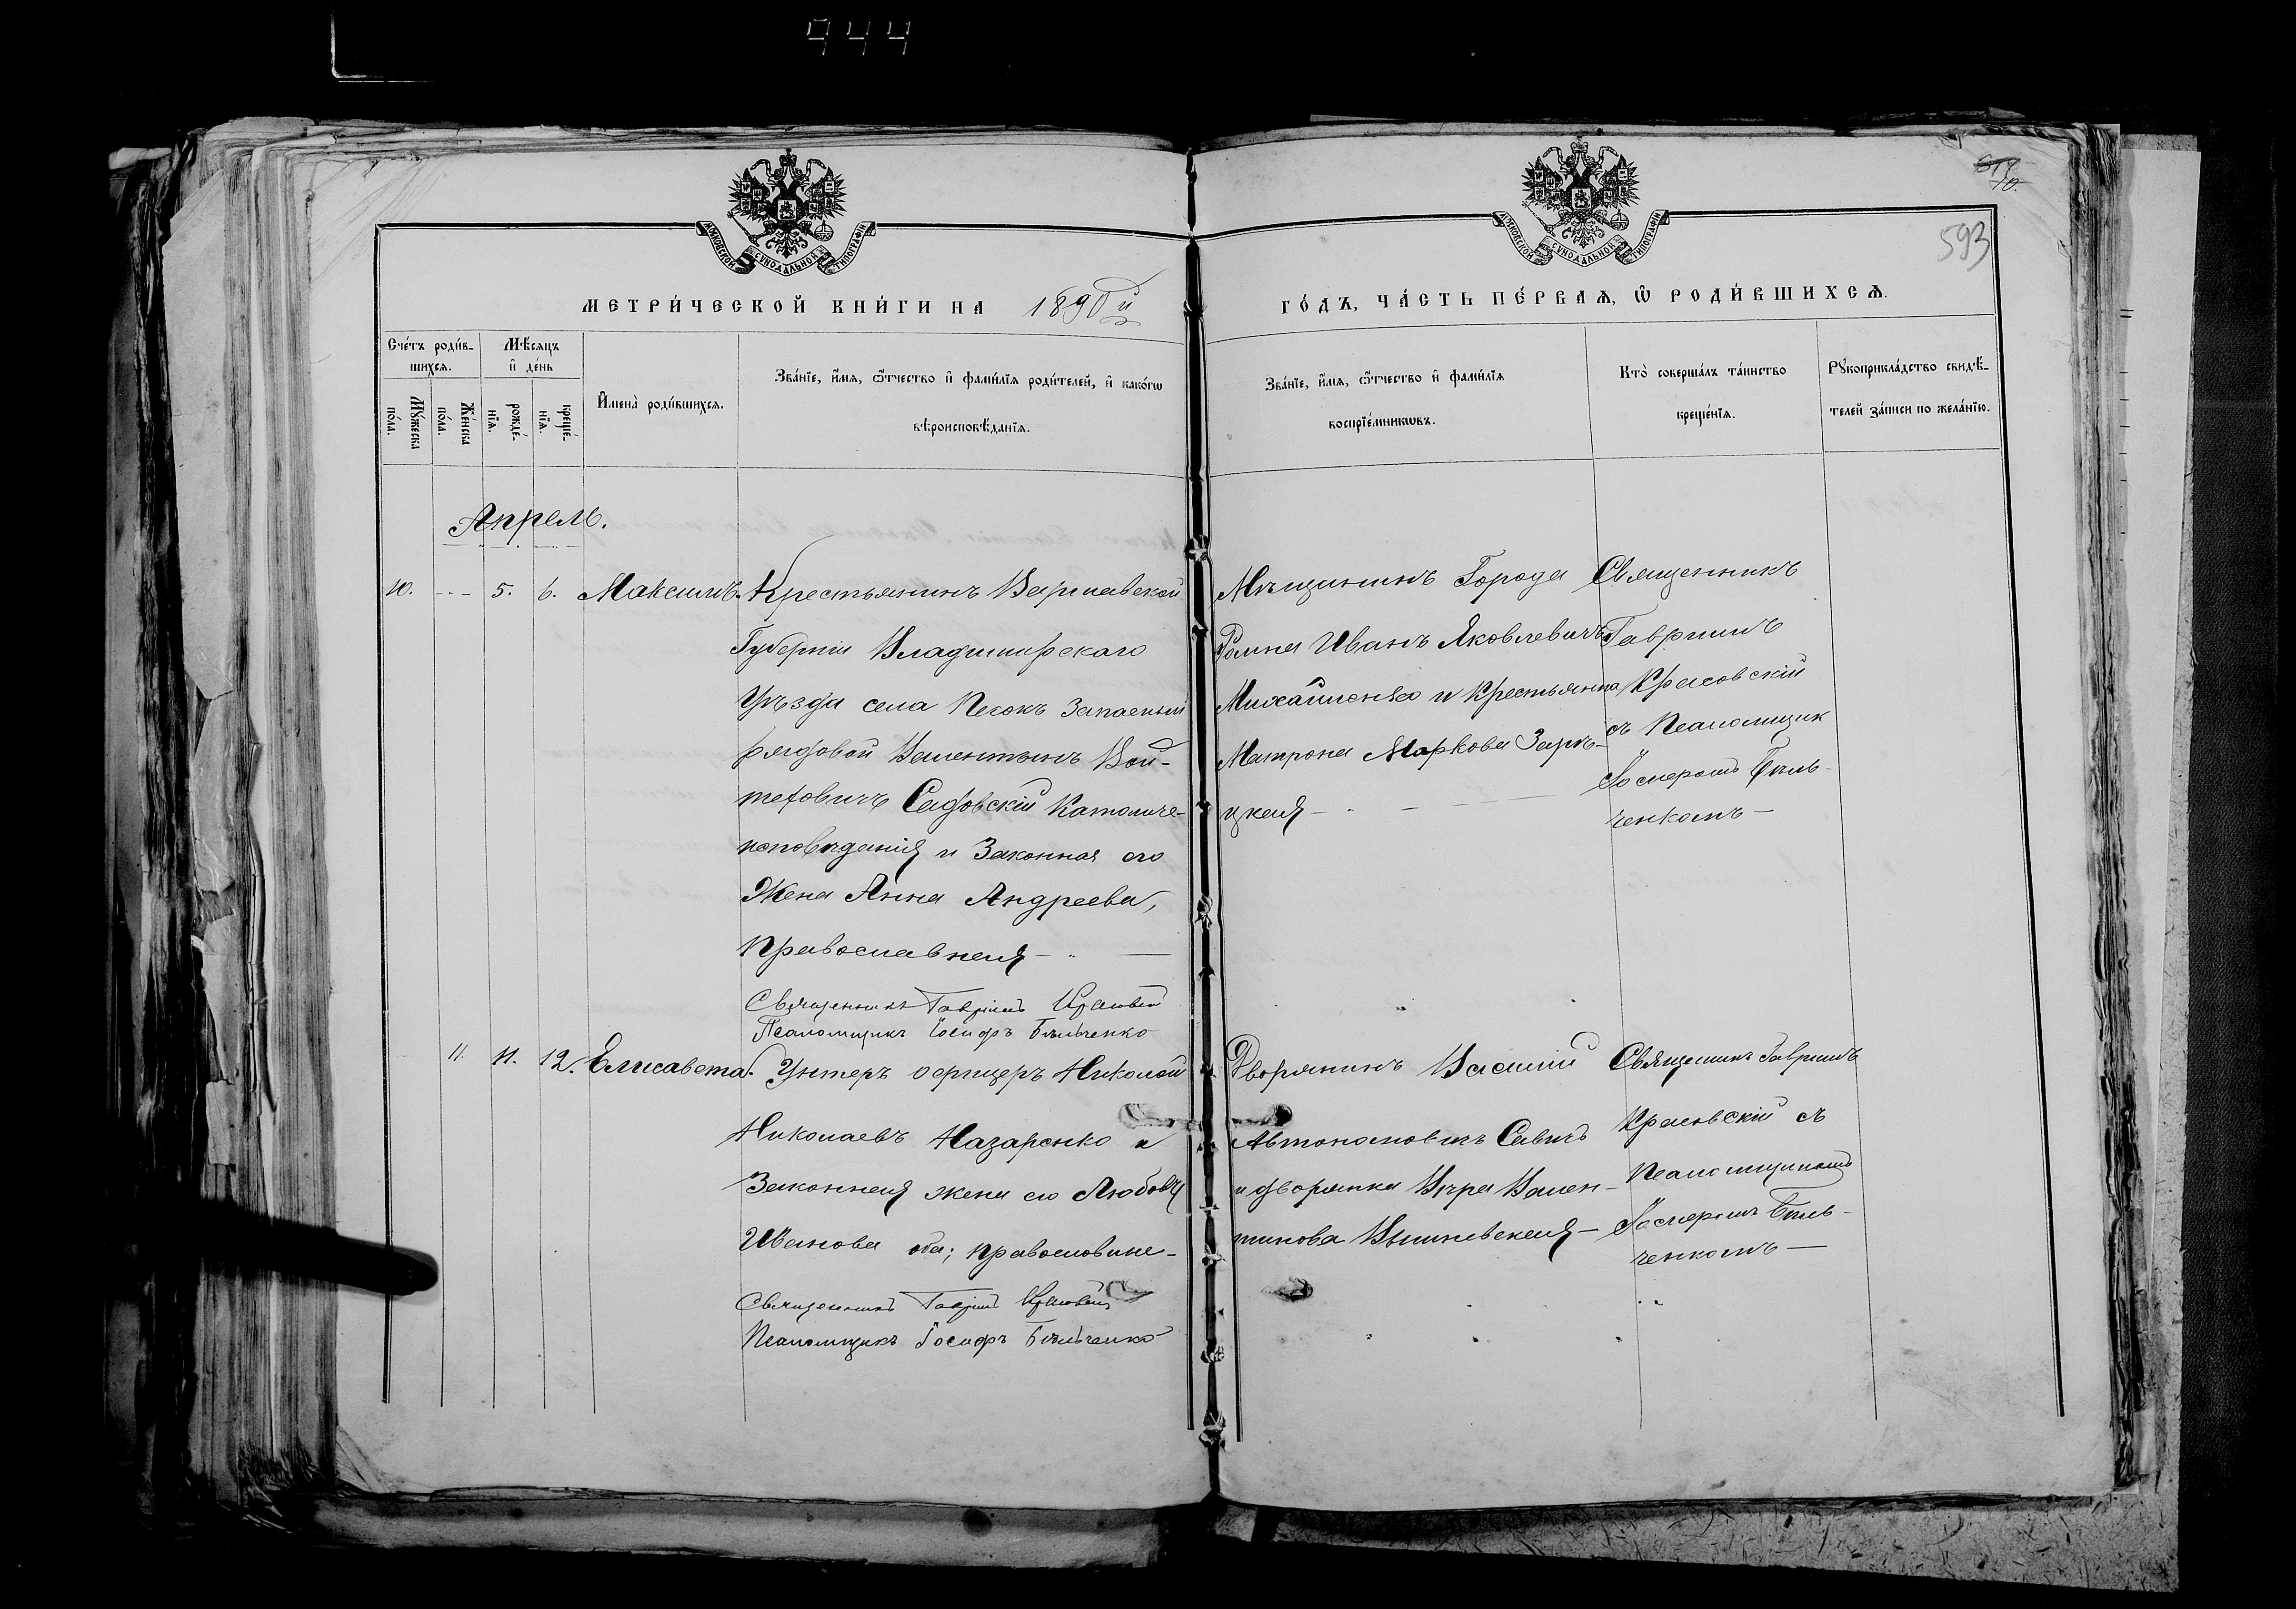 944
10.
593
МОСКОВСКОЙ СѴНОДАЛЬНОЙ ТИПОГРАФІИ
МОСКОВСКОЙ СѴНОДАЛЬНОЙ ТИПОГРАФІИ
МЕТРИ́ЧЕСКОЙ КНИ́ГИ НА 1890й ГО́ДЪ, ЧА́СТЬ ПЕ́РВАЯ, Ѿ РОДИ́ВШИХСЯ.
Сче́тъ роди́в-
шихся.
Мѣ́сяцъ
и де́нь
Му́жеска по́ла.
Же́нска по́ла.
рожде́-
нїя.
креще́-
нїя.
Имена̀ роди́вшихся.
Зва́нїе, и́мя, ѻ́тчество и фами́лїя роди́телей, и како́гѡ
вѣроисповѣ́данїя.
Зва́нїе, и́мя, ѻ́тчество и фами́лїя
воспрїе́мникѡвъ.
Кто̀ соверша́лъ та́инство
креще́нїя.
Рукоприкла́дство свидѣ́-
телей за́писи по жела́нїю.
Апрель.
10. 5. 6. Максимъ. Крестьянинъ Варшавской
Губерніи Владимирскаго
Уѣзда села Песокъ Запасный
рядовой Валентынъ Вой-
теховичъ Садовскій Католиче-
исповѣданія и Законная его
Жена Анна Андреева,
Православная —
Священникъ Гавріилъ Красовскій
Псаломщикъ Іосифъ Бѣльченко
Мѣщанинъ Города
Ромна Иванъ Яковлевичъ
Михайленко и крестьянка
Матрона Маркова Зари-
цкая —
Священникъ
Гавріилъ
Красовскій
съ Псаломщик
Іосифомъ Бѣль-
ченкомъ —
11. 11. 12. Елисавета. Унтеръ офицеръ Николай
Николаевъ Назаренко и
Законная жена его Любовь
Иванова оба; православные-
Священникъ Гавріилъ Красовскій
Псаломщикъ Іосифъ Бѣльченко
Дворянинъ Василій
Автономовичъ Савичъ
и дворянка Вѣра Вален-
тинова Вышневская —
Священникъ Гавріилъ
Красовскій съ
Псаломщикомъ
Іосифомъ Бѣль-
ченкомъ —